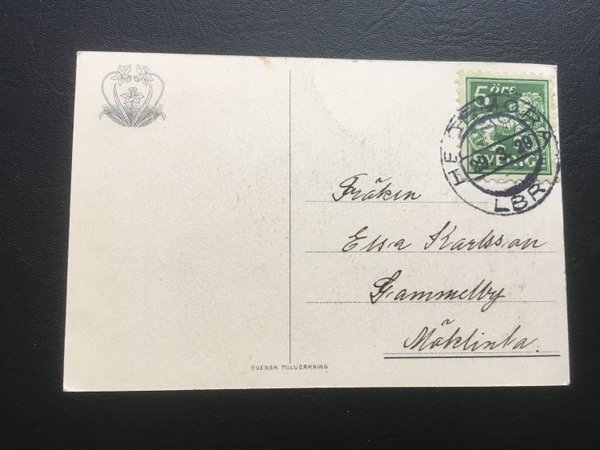 5 öre
SVERIGE
HEDEMORA
LBR
Fröken
Elsa Karlsson
Gammelby
Möklinta.
SVENSK TILLVERKNING